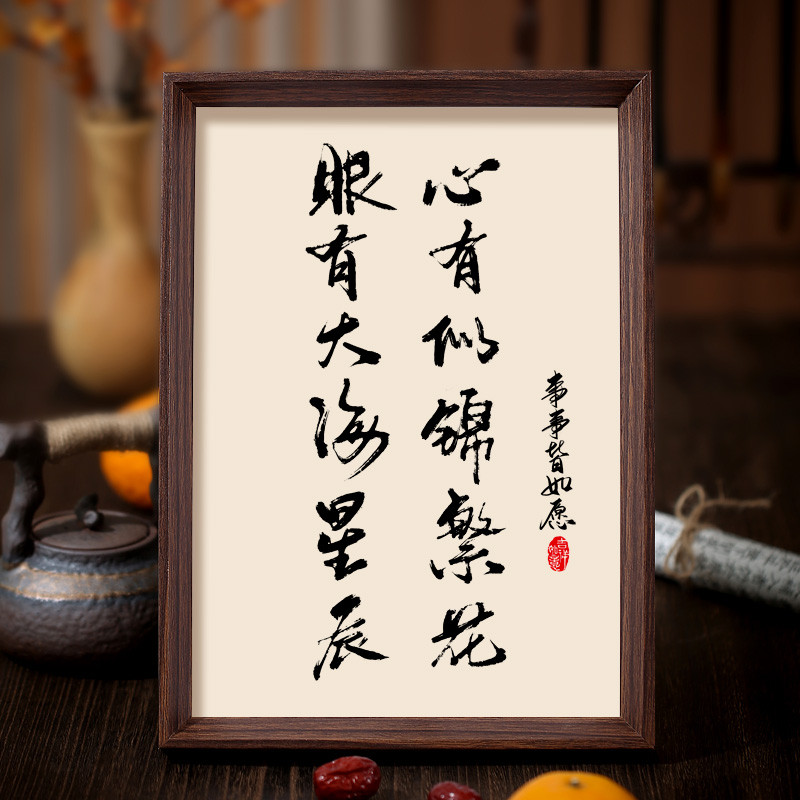 事事皆如愿
心有似锦繁花
眼有大海星辰